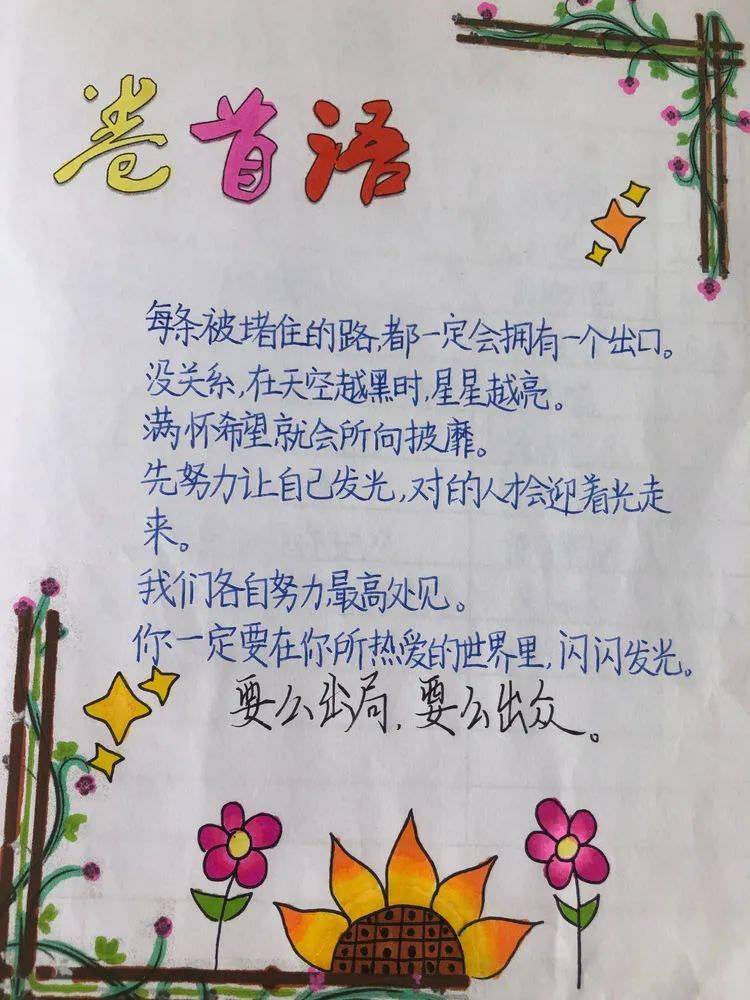 卷首语
每条被堵住的路,都一定会拥有一个出口。
没关系,在天空越黑时,星星越亮。
满怀希望就会所向披靡。
先努力让自己发光,对的人才会迎着光走
来。
我们各自努力,最高处见。
你一定要在你所热爱的世界里,闪闪发光。
要么出局,要么出众。